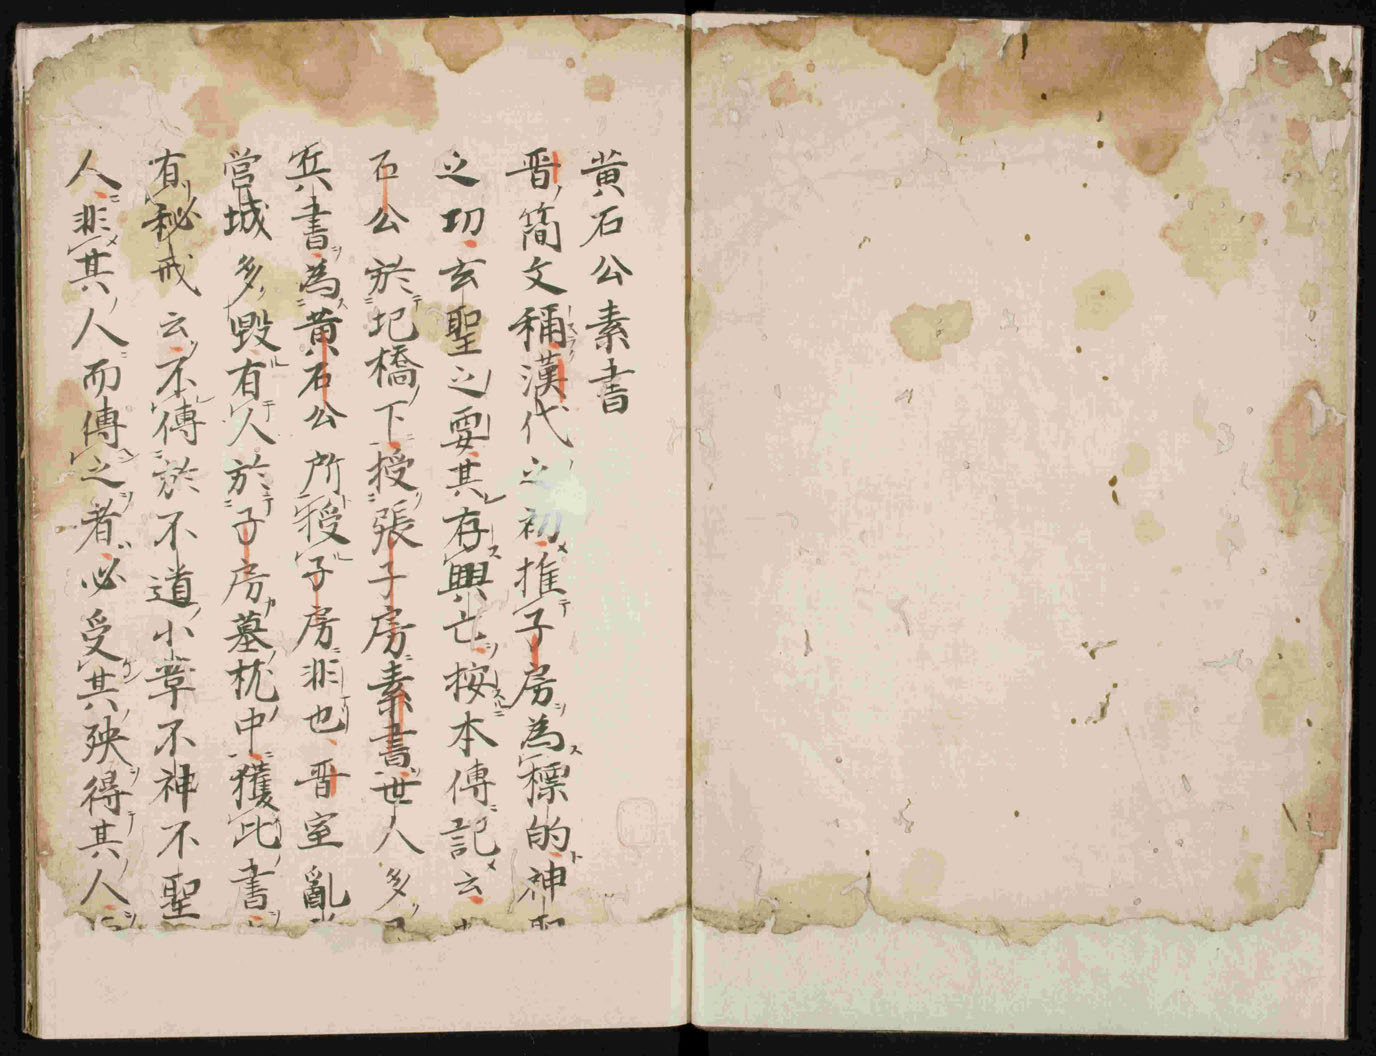 黄石公素書
晋簡文稱漢代之初推子房為標的神
之切玄聖之要其存興亡按本傳記云
石公於圯橋下授張子房素書世人多
兵書為黄石公所授子房非也晋室亂
営城多毀有人於子房墓枕中獲此書
有秘戒云不傳於不道小辜不神不聖
人非其人而傳之者必受其殃得其人